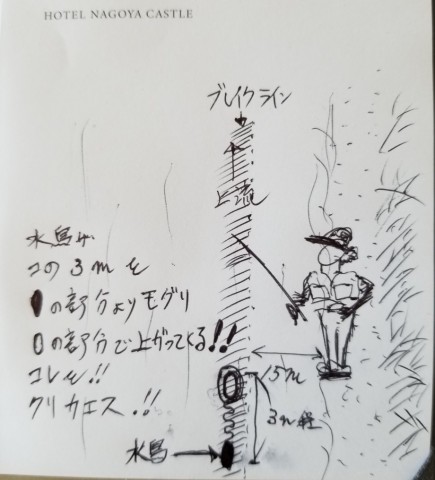 HOTEL NAGOYA CASTLE
ブレイクライン
上流
水鳥が
コの3mを
の部分よりモグリ
0の部分で上がってくる!!
コレを!!
クリカエス!!
15m
3m程
水鳥